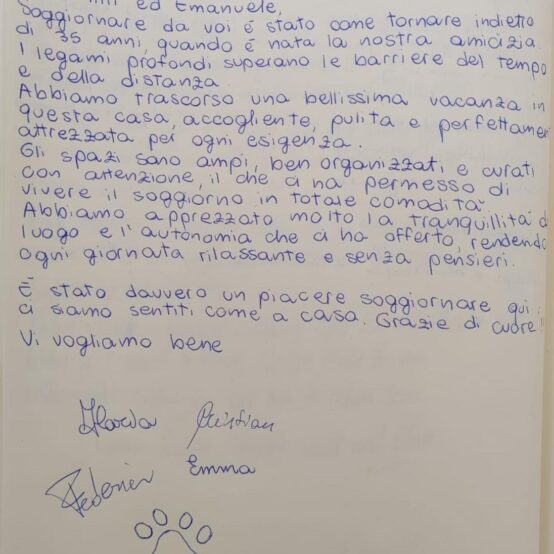 ed Emanuele,
Soggiornare da voi é stato come tornare indietro
di 35 anni, quando é nata la nostra amicizia.
I legami profondi superano le barriere del tempo
e della distanza.
Abbiamo trascorso una bellissima vacanza in
questa casa, accogliente, pulita e perfettamen
attrezzata per ogni esigenza.
Gli spazi sono ampi, ben organizzati e curati
con attenzione, il che ci ha permesso di
vivere il soggiorno in totale comodità.
Abbiamo apprezzato molto la tranquillità d
luogo e l'autonomia che ci ha offerto, rendendo
ogni giornata rilassante e senza pensieri.
É stato davvero un piacere soggiornare qui:
ci siamo sentiti come a casa. Grazie di cuore!!
Vi vogliamo bene
Ilaria Cristian
Federica Emma